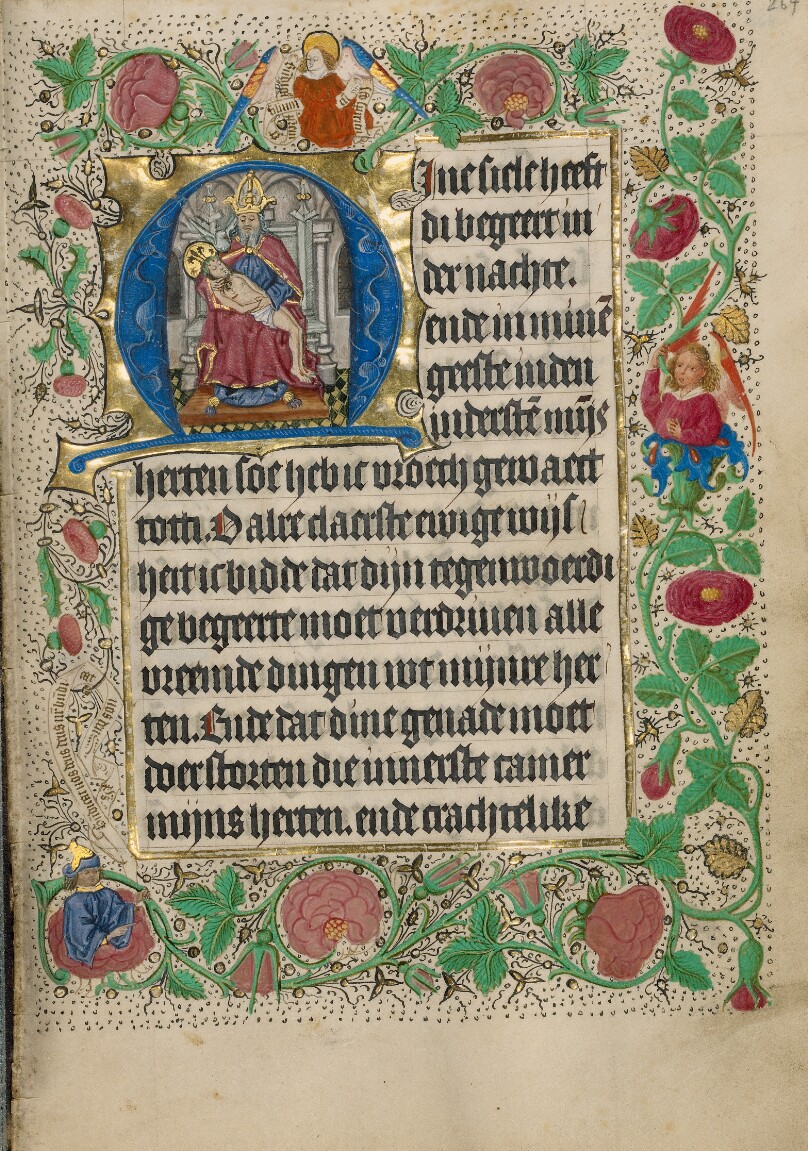 Mine siele heeft
di begeert in
der nachte.
ende in minē
geeste in den
inderstē mijs
herten soe heb ic vroech gewaect
totti. O alre claerste ewige wijs
heit ic bidde dat dijn tegenwoerdi
ge begeerte moet verdriuen alle
vreemde dingen wt mijnre her
ten. Ende dat dine genade moet
doerstorten die innerste camer
mijns herten. ende crachtelike